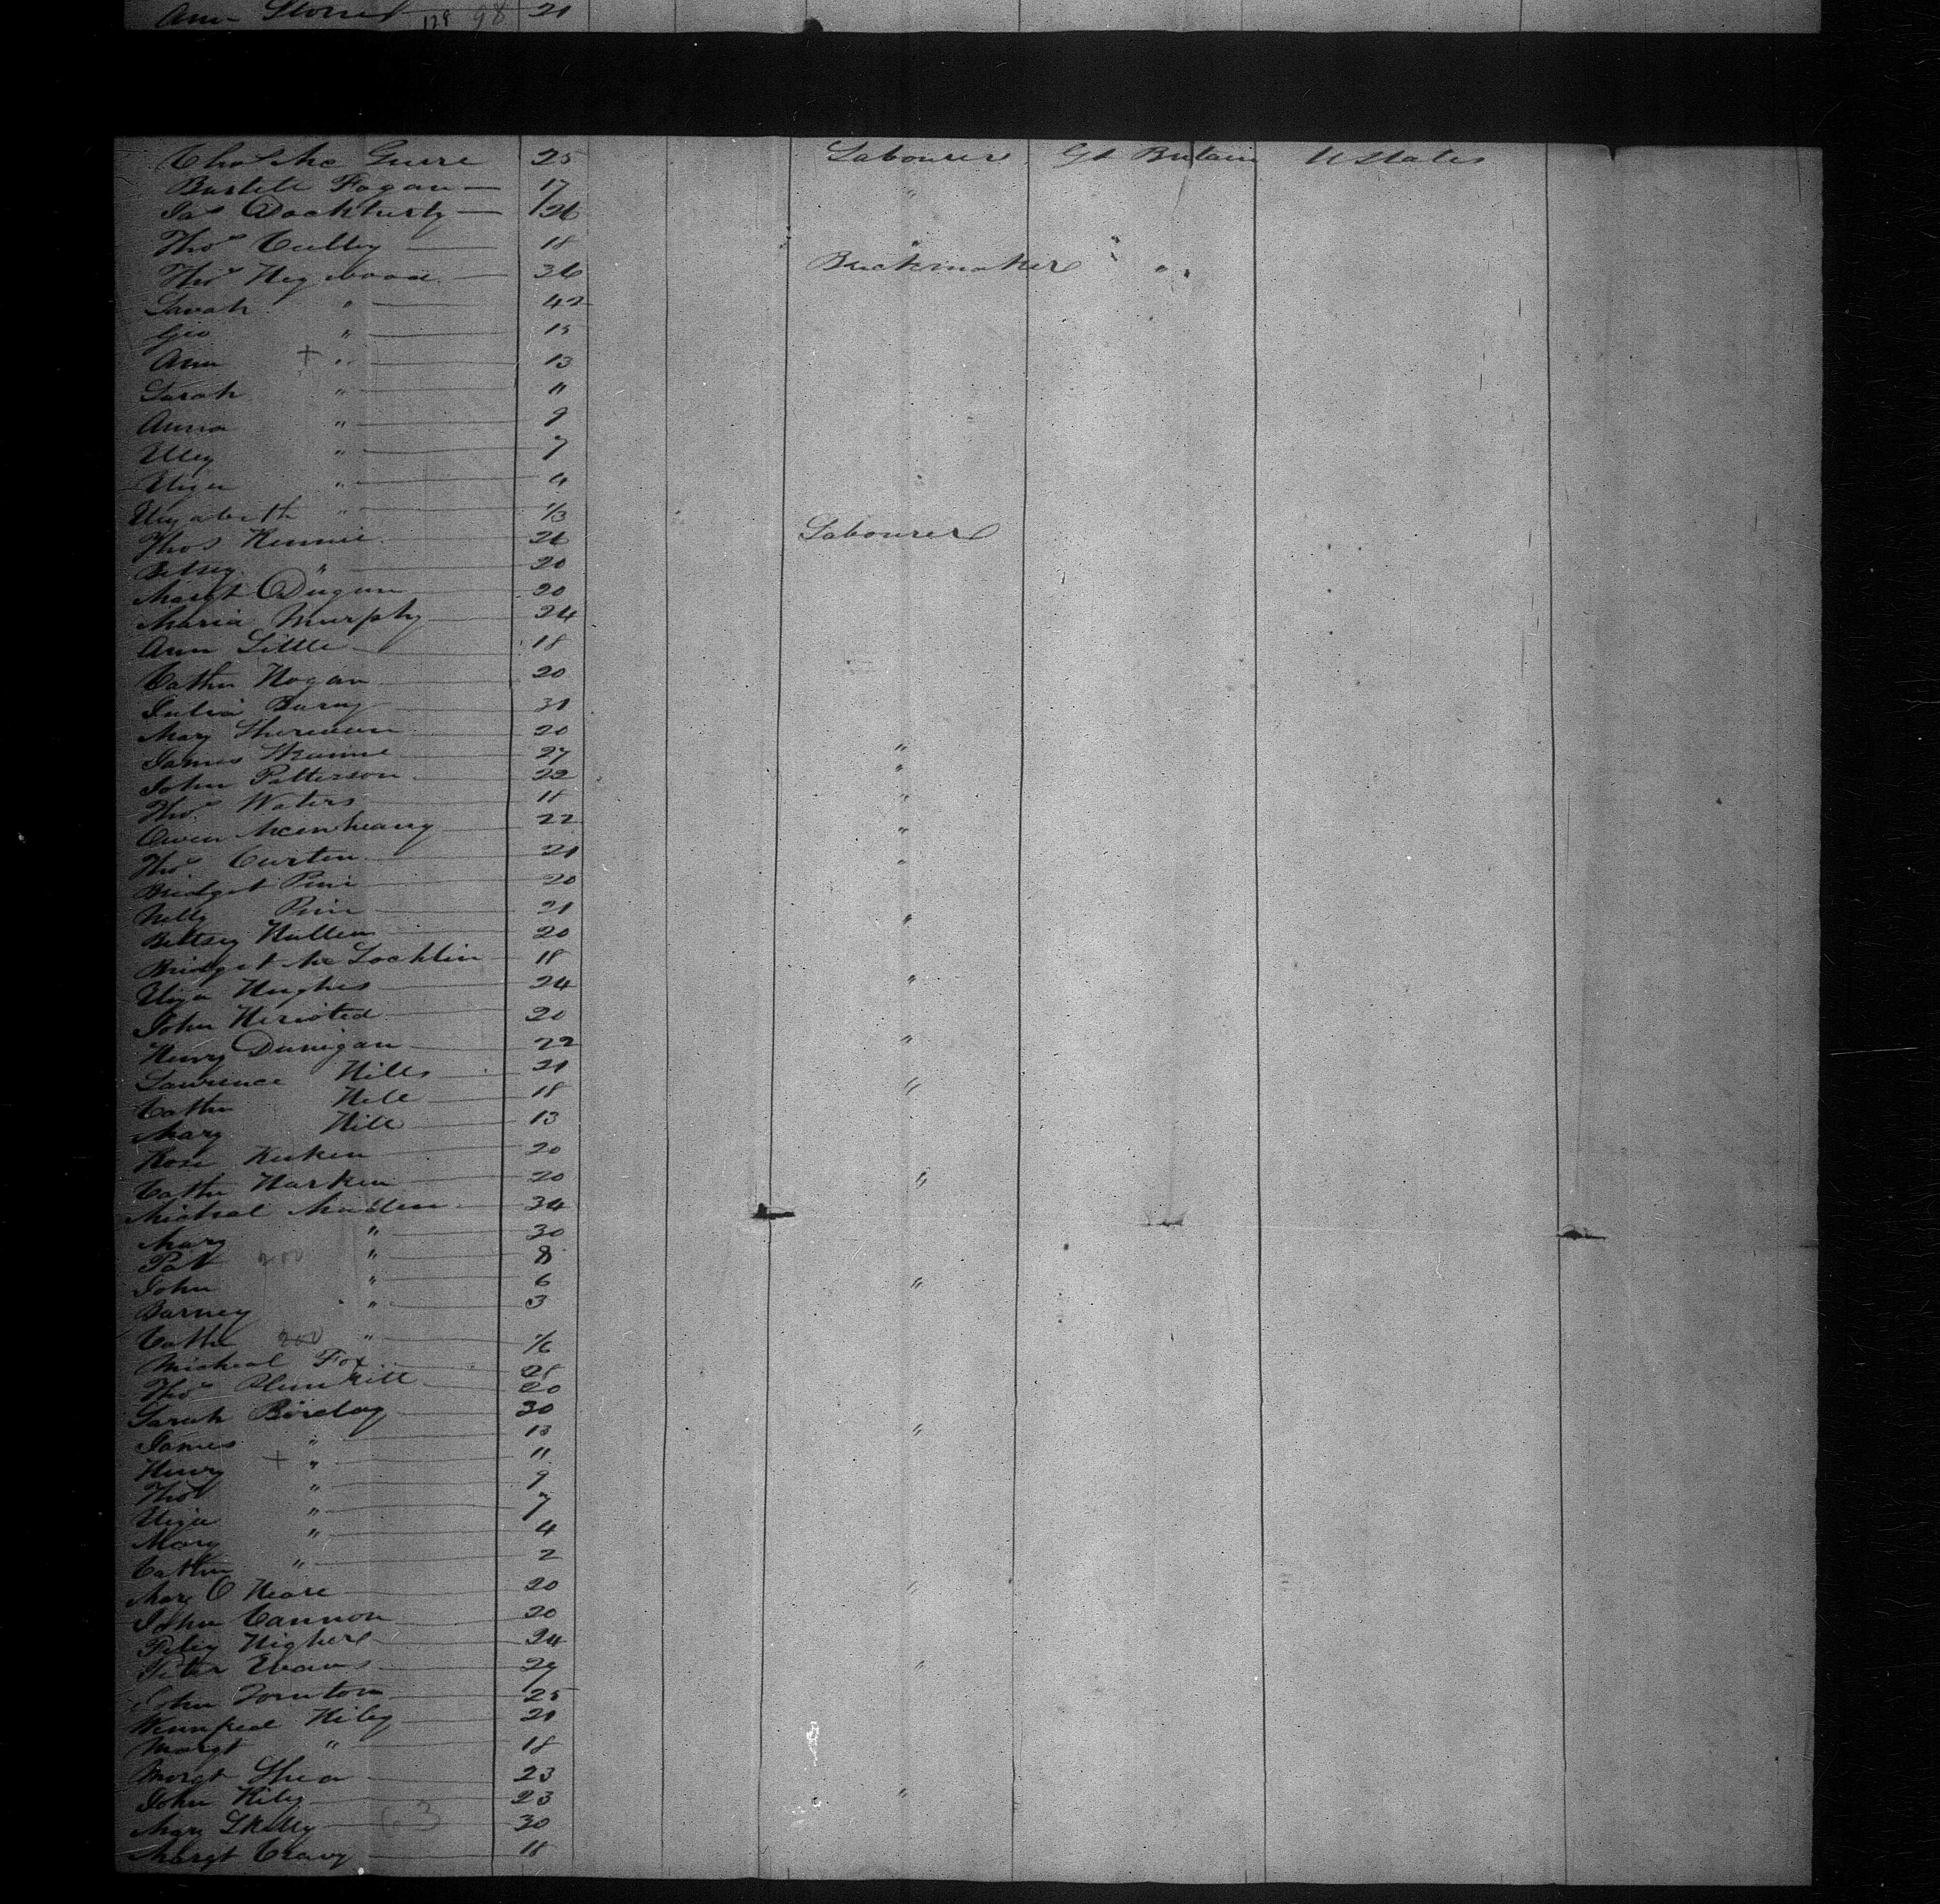 Ann 21
128 98
Chas Mc Guire 25 Labourer Gt Britain U States
Bartell Fogan 17 "
Jas Dockherty 26
Thos Culley 18 "
Thos 36 Brickmaker "
Sarah " 42
Geo " 15
Ann + " 13
Sarah " 11
Anna " 9
" 7
Eliza " 4
Elizabeth " 1/3
Thos Kennie 21 Labourer
Betsey " 20
Margt Dugan 20
Maria Murphy 24
Ann Little 18
Cathn Hogan 20
Julia 31
Mary Sheridan 20
James 27 "
John Patterson 22 "
Thos Waters 18 "
Owen 22 "
Thos Curten 21 "
Bridget Pim 20
Nelly Pim 21 "
Bettsey Hullen 20
Bridget Mc Locklin 18
Eliza Hughes 24 "
John 20
Henry Dunigan 22 "
Lawrence Hills 21 "
Cathn Hill 18
Mary Hill 13
Rose 20
Cathn Harken 20 "
Micheal Madden 34
Mary " 30
Pat 200 " 8
John " 6 "
Barney " 3
Cathn 200 " 1/6
Micheal Fox 25
Thos Plunkett 20
Sarah Barclay 30
James " 13 "
Henry + " 11
Thos " 9
Eliza " 7
Mary " 4
Cathn " 2
Mary O Heare 20 "
John Cannon 20
24
Peter Evans 27 "
John Tornton 25
Winnfred Kiley 21
Margt " 18
Margt Shea 23
John Kiley 23 "
Mary Skelly 63 30
Margt 18